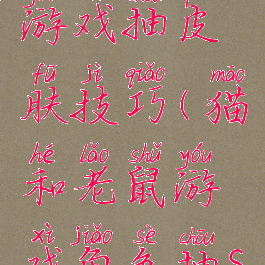 游戏抽皮
fū jì qiǎo māo
肤技巧(猫
hé lǎo shǔ yóu
和老鼠游
xì jiǎo sè chōu
戏角色抽S